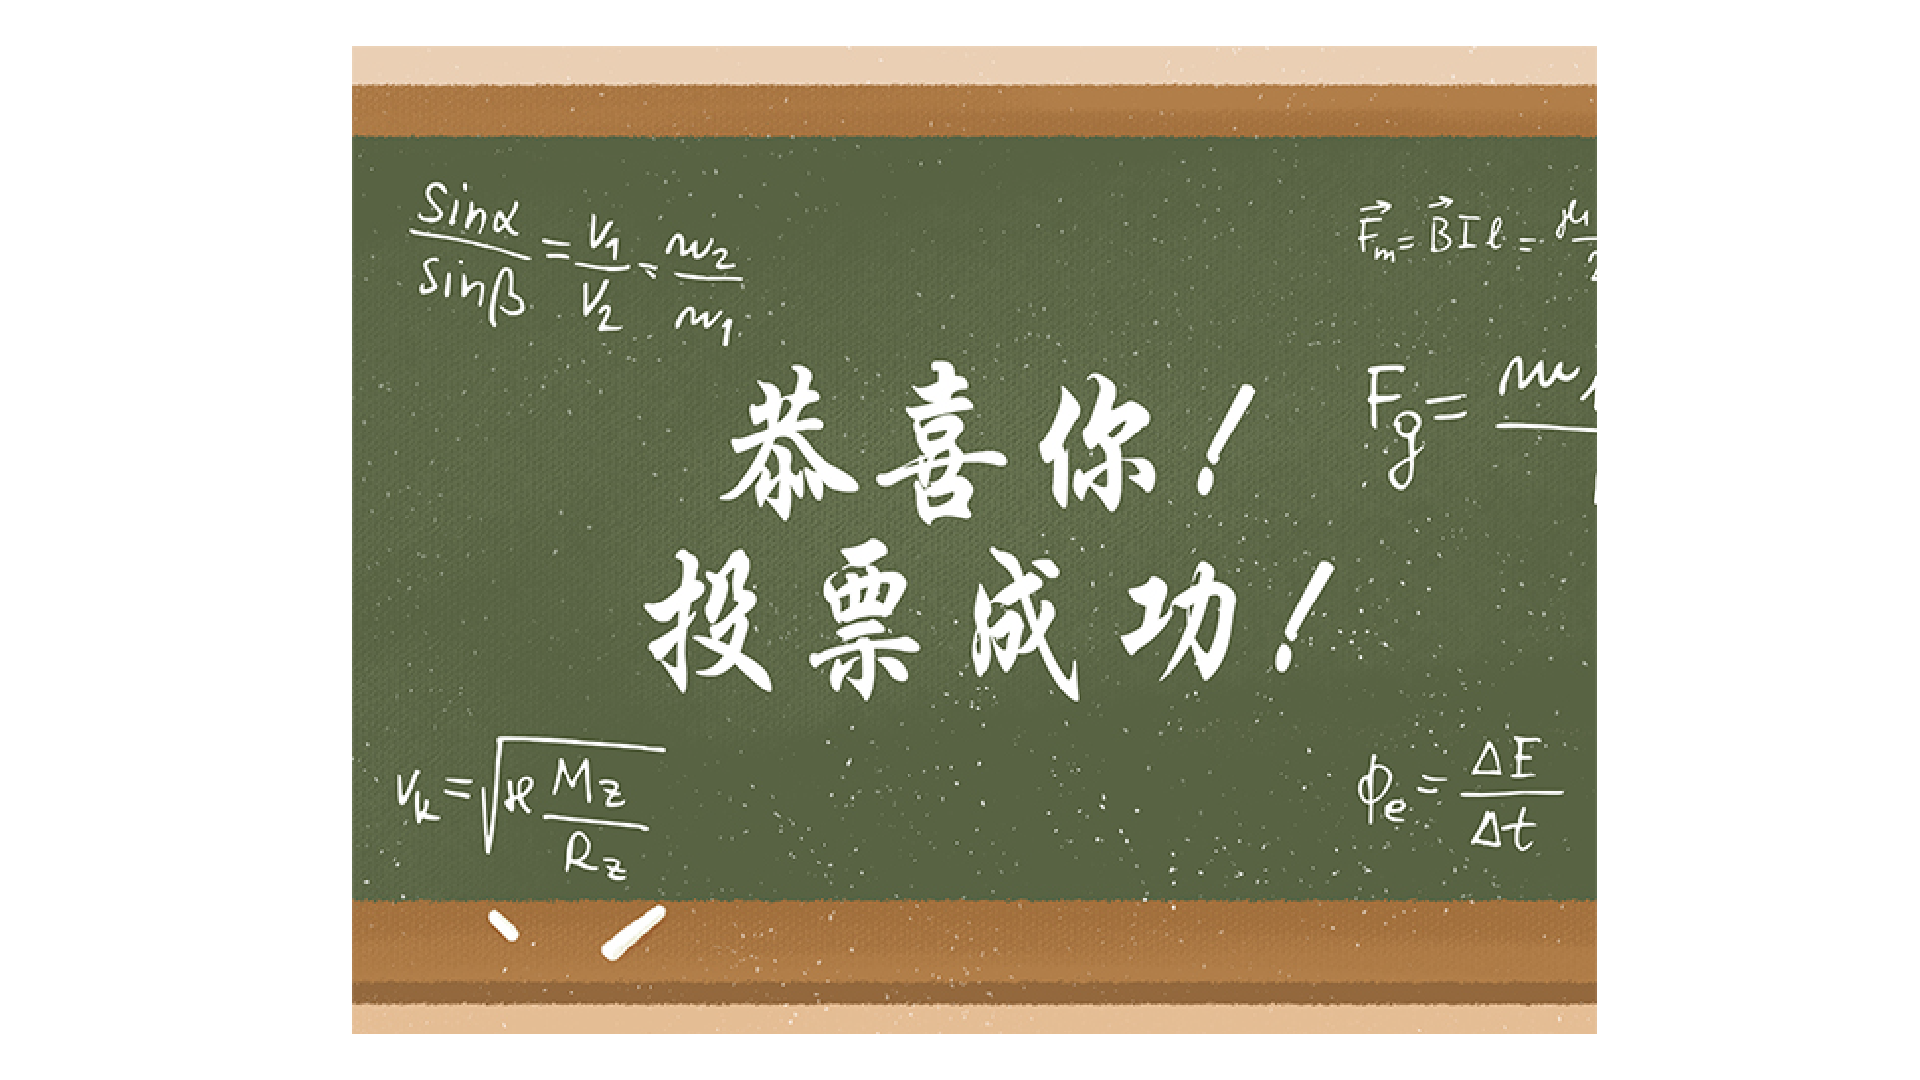 sinα/sinβ = v₁/v₂ = n₂/n₁
F⃗ₘ = B⃗Il =
恭喜你！
F_g =
投票成功！
vₖ = √(ϰ M_z/R_z)
ϕₑ = ΔE/Δt